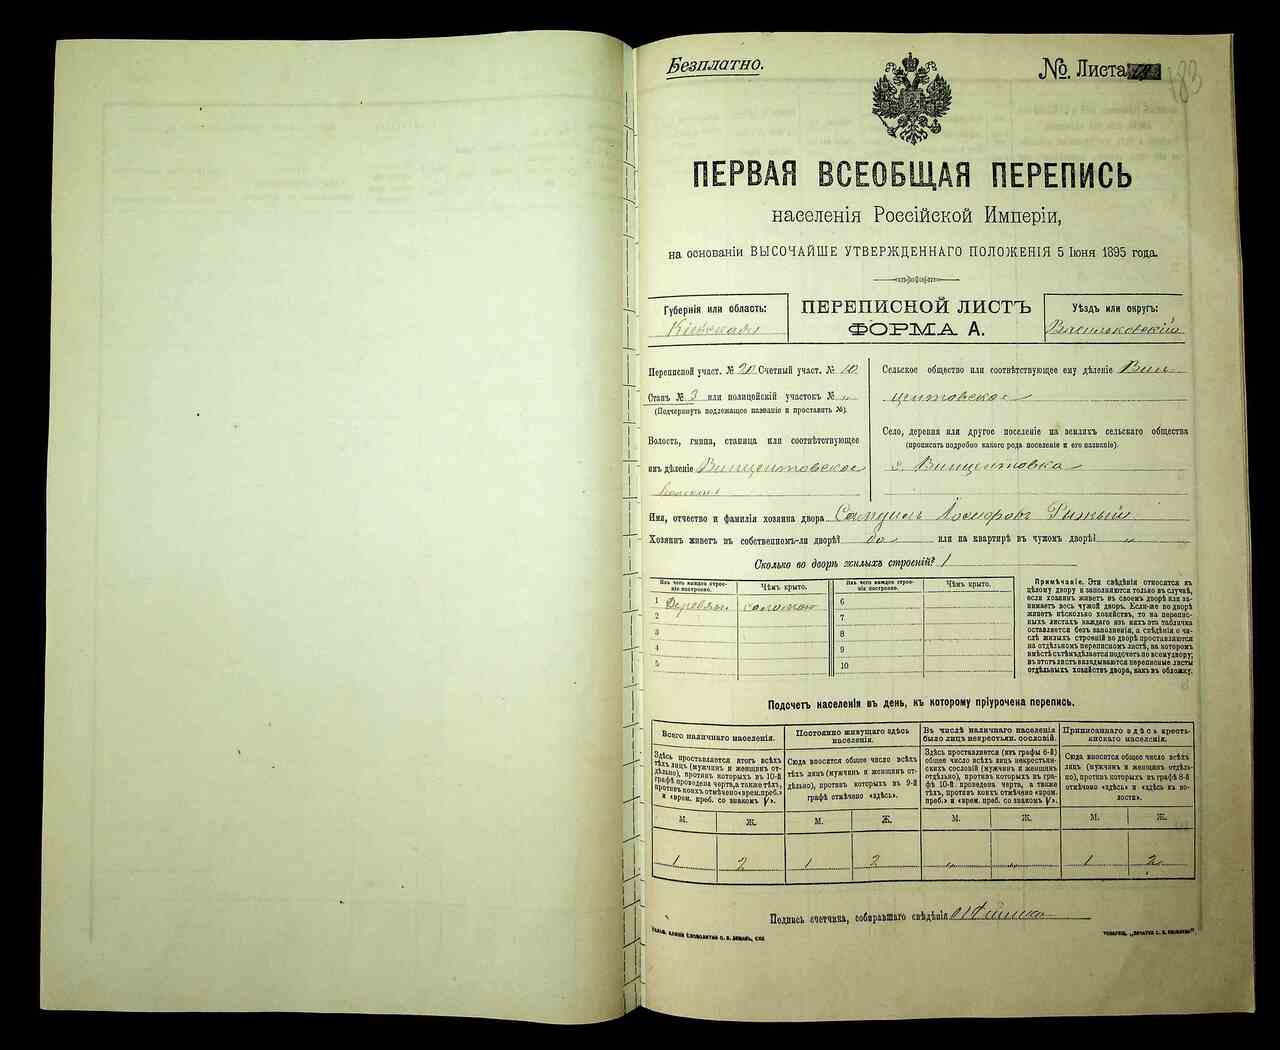 Безплатно.
№. Листа
183
ПЕРВАЯ ВСЕОБЩАЯ ПЕРЕПИСЬ
населенія Россійской Имперіи,
на основаніи ВЫСОЧАЙШЕ УТВЕРЖДЕННАГО ПОЛОЖЕНІЯ 5 Іюня 1895 года.
Губернія или область:
Кіевская
ПЕРЕПИСНОЙ ЛИСТЪ
ФОРМА А.
Уѣздъ или округъ:
Васильковскій
Переписной участ. № 20 Счетный участ. № 10
Станъ № 3 или полицейскій участокъ № "
(Подчеркнуть подлежащее названіе и проставить №).
Волость, гмина, станица или соотвѣтствующее
имъ дѣленіе Винцентовское
волости
Сельское общество или соотвѣтствующее ему дѣленіе Вин
центовское
Село, деревня или другое поселеніе на земляхъ сельскаго общества
(прописать подробно какого рода поселеніе и его названіе).
с. Винцентовка
Имя, отчество и фамилія хозяина двора Самуилъ Рыжый
Хозяинъ живетъ въ собственномъ-ли дворѣ? да или на квартирѣ въ чужомъ дворѣ? "
Сколько во дворѣ жилыхъ строеній? 1
Изъ чего каждое строеніе построено.
Чѣмъ крыто.
Изъ чего каждое строеніе построено.
Чѣмъ крыто.
1 Деревян соломою
2
3
4
5
6
7
8
9
10
Примѣчаніе. Эти свѣдѣнія относятся къ
цѣлому двору и заполняются только въ случаѣ,
если хозяинъ живетъ въ своемъ дворѣ или за-
нимаетъ весь чужой дворъ. Если-же во дворѣ
живетъ нѣсколько хозяйствъ, то на перепис-
ныхъ листахъ каждаго изъ нихъ эта табличка
оставляется безъ заполненія, а свѣдѣнія о чи-
слѣ жилыхъ строеній во дворѣ проставляются
на отдѣльномъ переписномъ листѣ, на которомъ
вмѣстѣ съ тѣмъ дѣлается подсчетъ по всему двору;
въ этотъ листъ вкладываются переписные листы
отдѣльныхъ хозяйствъ двора, какъ въ обложку.
Подсчетъ населенія въ день, къ которому пріурочена перепись.
Всего наличнаго населенія.
Здѣсь проставляется итогъ всѣхъ
тѣхъ лицъ (мужчинъ и женщинъ от-
дѣльно), противъ которыхъ въ 10-й
графѣ проведена черта, а также тѣхъ,
противъ коихъ отмѣчено «врем. преб.»
и «врем. преб. со знакомъ V».
Постоянно живущаго здѣсь
населенія.
Сюда вносится общее число всѣхъ
тѣхъ лицъ (мужчинъ и женщинъ от-
дѣльно), противъ которыхъ въ 9-й
графѣ отмѣчено «здѣсь».
Въ числѣ наличнаго населенія
было лицъ некрестьян. сословій.
Здѣсь проставляется (изъ графы 6-й)
общее число всѣхъ лицъ некрестьян-
скихъ сословій (мужчинъ и женщинъ
отдѣльно), противъ которыхъ въ гра-
фѣ 10-й. проведена черта, а также
тѣхъ, противъ коихъ отмѣчено «врем.
преб.» и «врем. преб. со знакомъ V».
Приписаннаго здѣсь кресть-
янскаго населенія.
Сюда вносится общее число всѣхъ
лицъ (мужчинъ и женщинъ отдѣль-
но), противъ которыхъ въ графѣ 8-й
отмѣчено «здѣсь» и «здѣсь въ во-
лости».
М. Ж. М. Ж. М. Ж. М. Ж.
1 2 1 2 " " 1 2
Подпись счетчика, собиравшаго свѣдѣнія